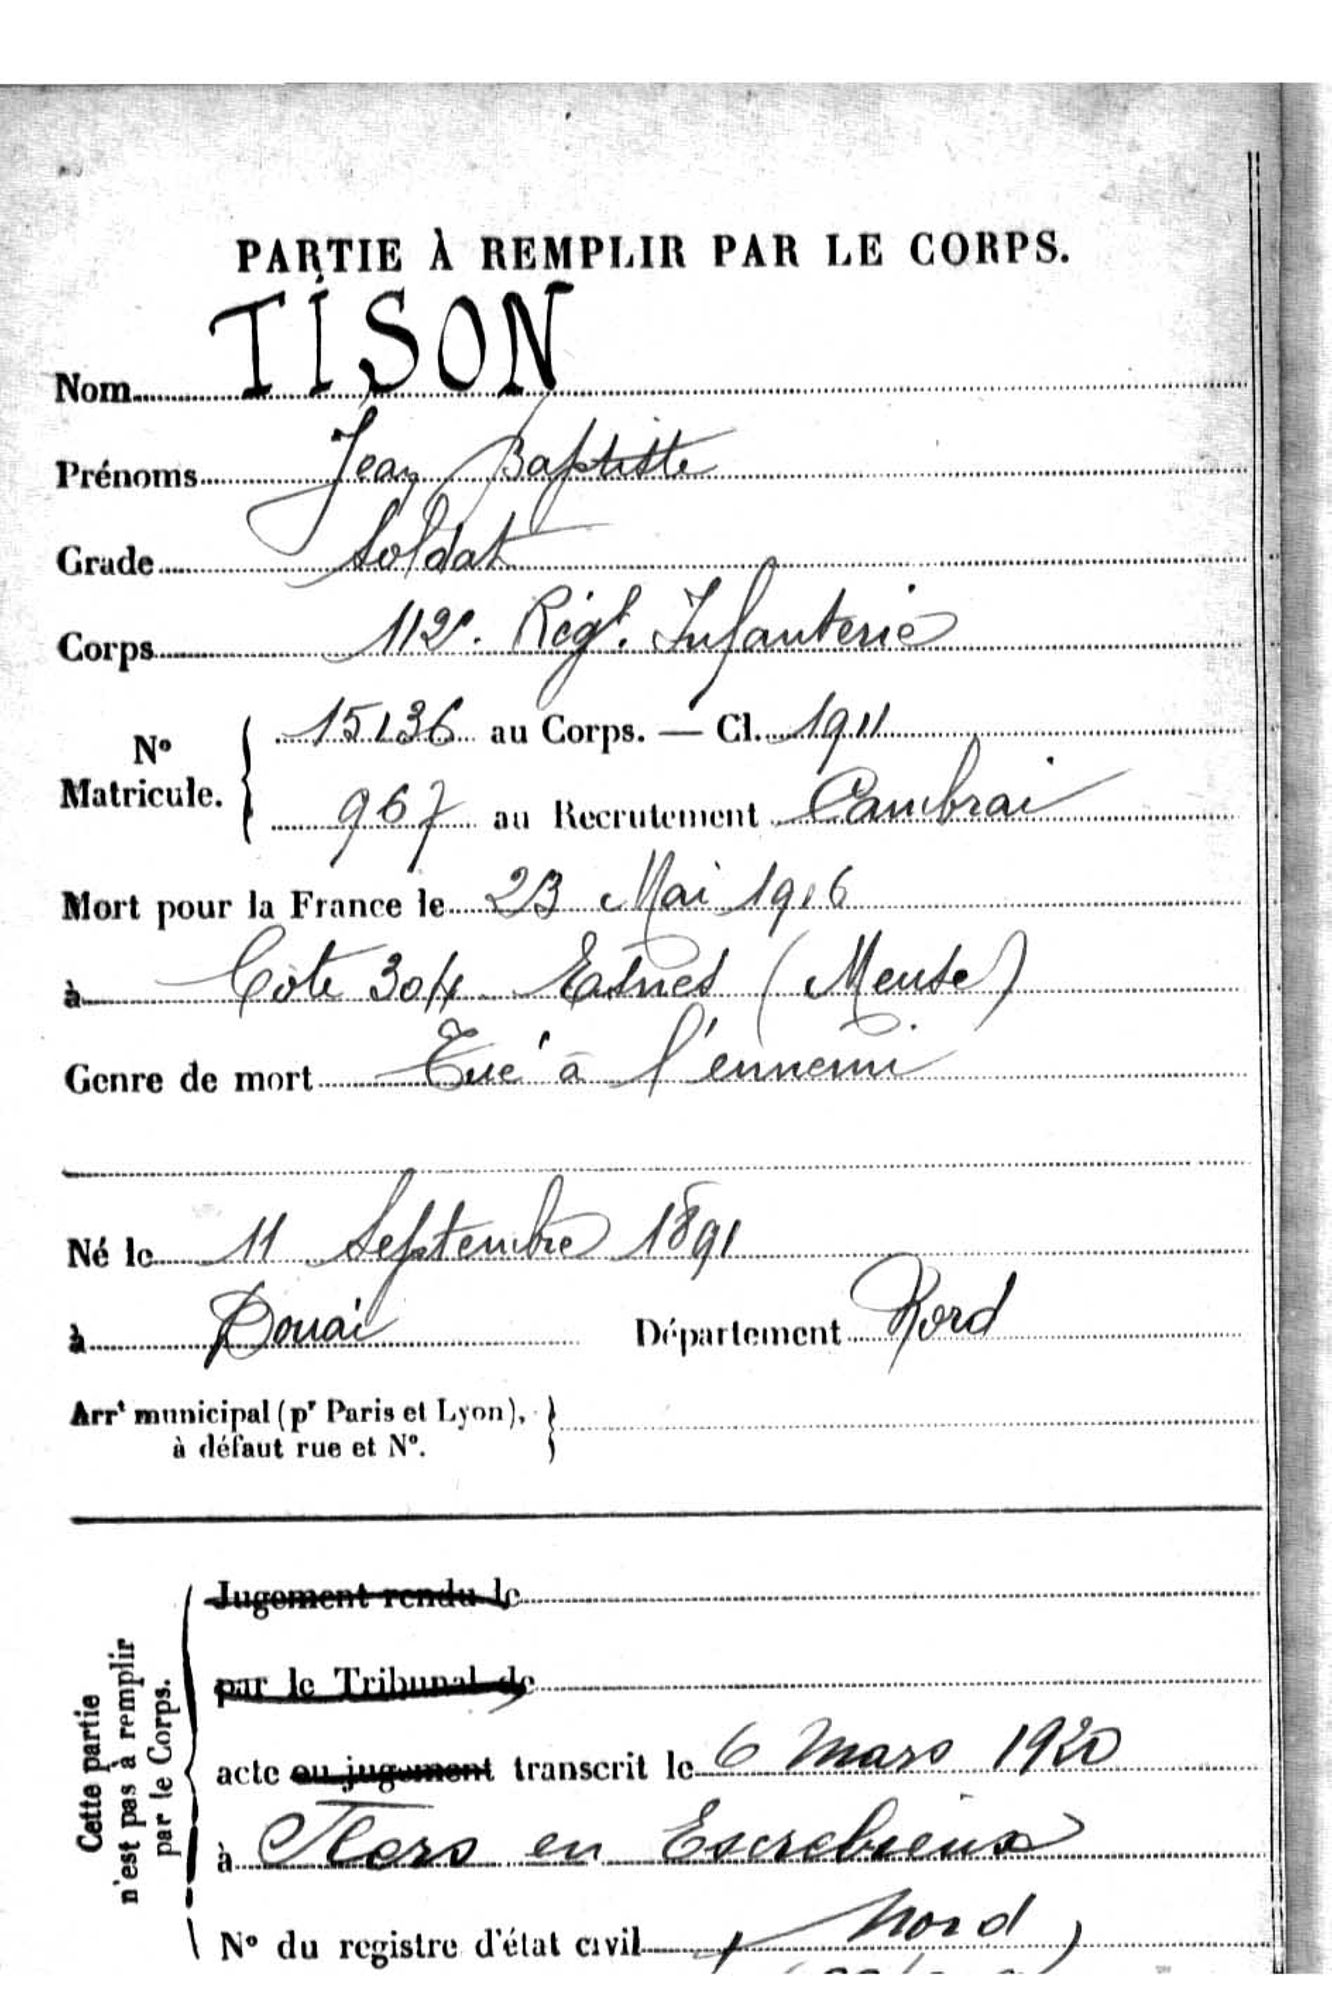 PARTIE À REMPLIR PAR LE CORPS.
Nom TISON
Prénoms Jean Baptiste
Grade Soldat
Corps 112e. Régt. Infanterie
No Matricule. { 15136 au Corps. — Cl. 1911
967 au Recrutement Cambrai
Mort pour la France le 23 Mai 1916
à Côte 304 Esnes (Meuse)
Genre de mort Tué à l'ennemi
Né le 11 Septembre 1891
à Douai Département Nord
Arrt municipal (pr Paris et Lyon), }
à défaut rue et No.
Cette partie
n'est pas à remplir
par le Corps.
Jugement rendu le
par le Tribunal de
acte ou jugement transcrit le 6 mars 1920
à Flers en Escrebieux
No du registre d'état civil (Nord)